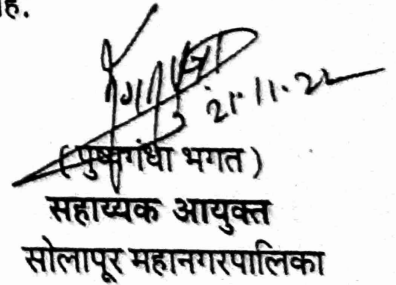 ह.
21.11.22
(पुष्पगंधा भगत)
सहाय्यक आयुक्त
सोलापूर महानगरपालिका